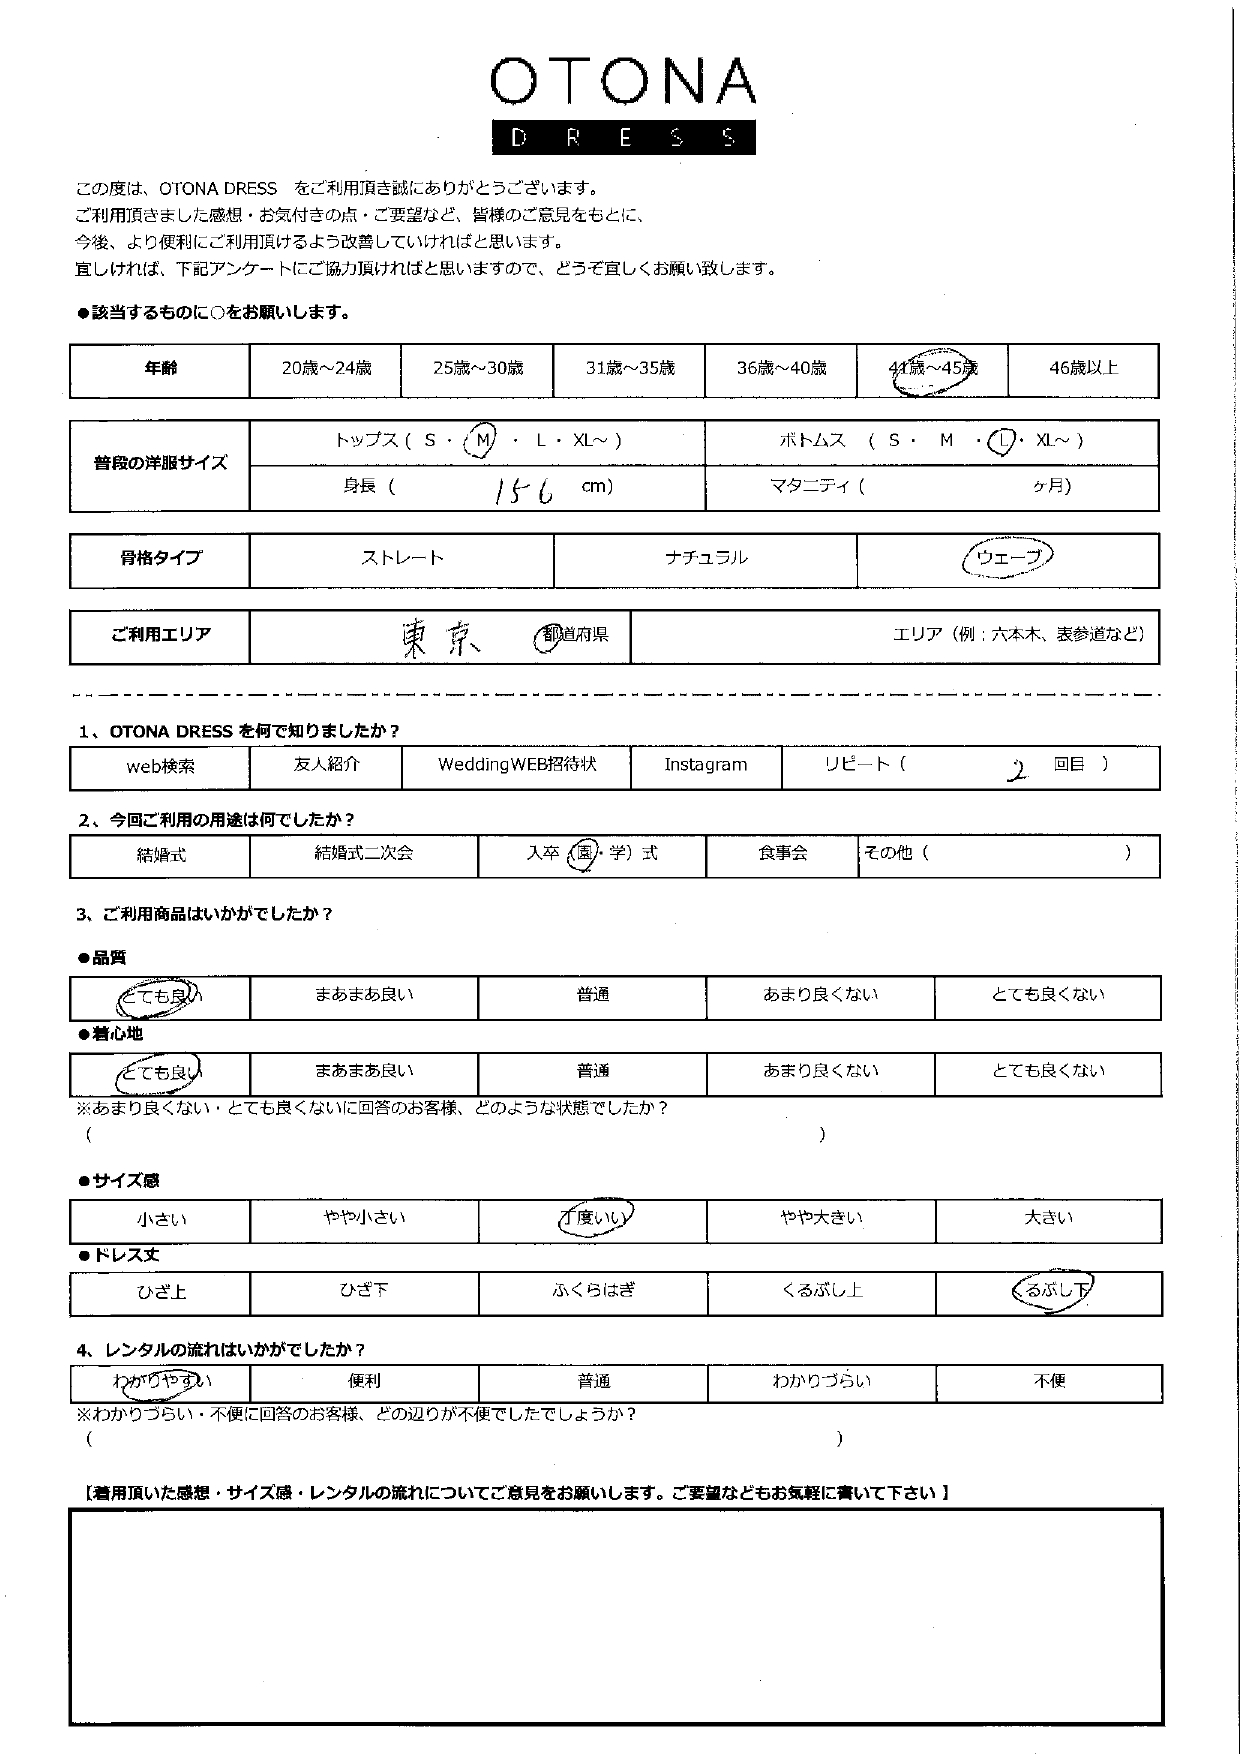 OTONA
DRESS
この度は、OTONA DRESS をご利用頂き誠にありがとうございます。
ご利用頂きました感想・お気付きの点・ご要望など、皆様のご意見をもとに、
今後、より便利にご利用頂けるよう改善していければと思います。
宜しければ、下記アンケートにご協力頂ければと思いますので、どうぞ宜しくお願い致します。
●該当するものに○をお願いします。
年齢 20歳～24歳 25歳～30歳 31歳～35歳 36歳～40歳 41歳～45歳 46歳以上
普段の洋服サイズ トップス ( S ・ M ・ L ・ XL～ ) ボトムス ( S ・ M ・ L ・ XL～ )
身長 ( 156 cm) マタニティ ( ヶ月)
骨格タイプ ストレート ナチュラル ウェーブ
ご利用エリア 東京 都道府県 エリア（例；六本木、表参道など）
1、OTONA DRESS を何で知りましたか？
web検索 友人紹介 WeddingWEB招待状 Instagram リピート（ 2 回目 ）
2、今回ご利用の用途は何でしたか？
結婚式 結婚式二次会 入卒（園・学）式 食事会 その他（ ）
3、ご利用商品はいかがでしたか？
●品質
とても良い まあまあ良い 普通 あまり良くない とても良くない
●着心地
とても良い まあまあ良い 普通 あまり良くない とても良くない
※あまり良くない・とても良くないに回答のお客様、どのような状態でしたか？
( )
●サイズ感
小さい やや小さい 丁度いい やや大きい 大きい
●ドレス丈
ひざ上 ひざ下 ふくらはぎ くるぶし上 くるぶし下
4、レンタルの流れはいかがでしたか？
わかりやすい 便利 普通 わかりづらい 不便
※わかりづらい・不便に回答のお客様、どの辺りが不便でしたでしょうか？
( )
【着用頂いた感想・サイズ感・レンタルの流れについてご意見をお願いします。ご要望などもお気軽に書いて下さい】